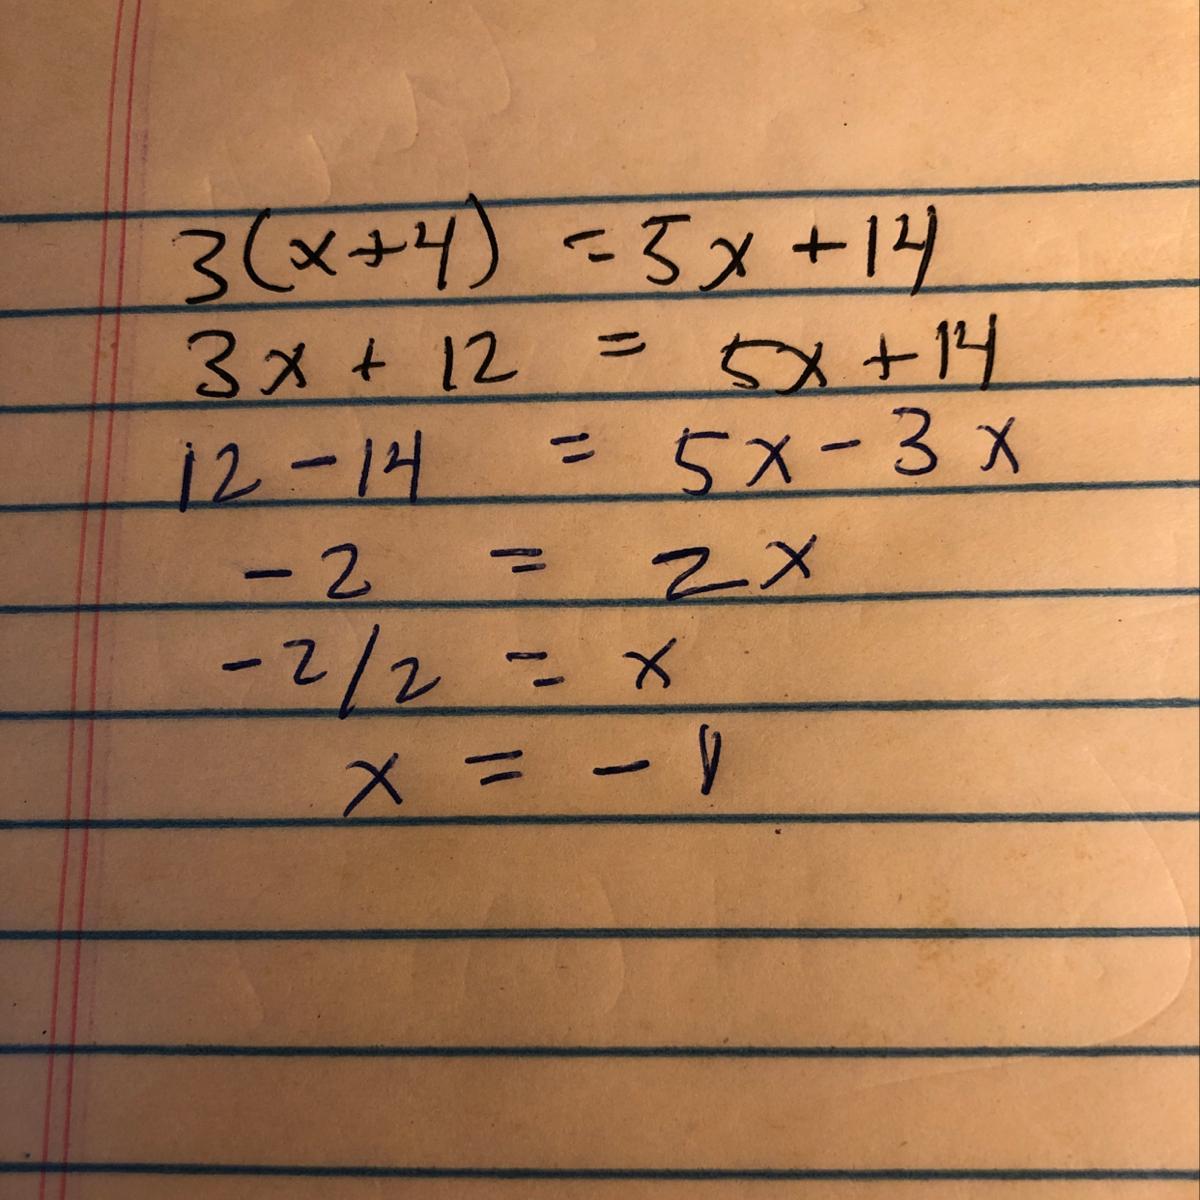 3(x+4) = 5x + 14
3x + 12 = 5x + 14
12 - 14 = 5x - 3x
-2 = 2x
-2/2 = x
x = -1